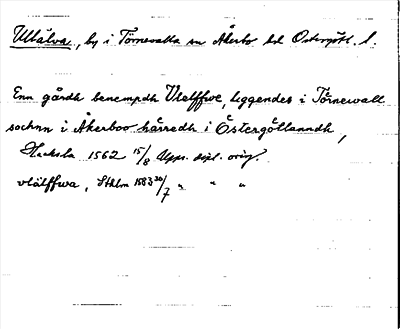 Ullälva, by i Törnevalla sn Åkerbo hd Östergötl. l.
Enn gårdh benempdh Vlelffwe, leggendes i Törnewall
sochnn i Åkerboo härredh i Östergöttlanndh,
Hacksla 1562 15/8 Upps. dipl. orig.
vlälffwa, Sthlm 1583 30/7 " " "